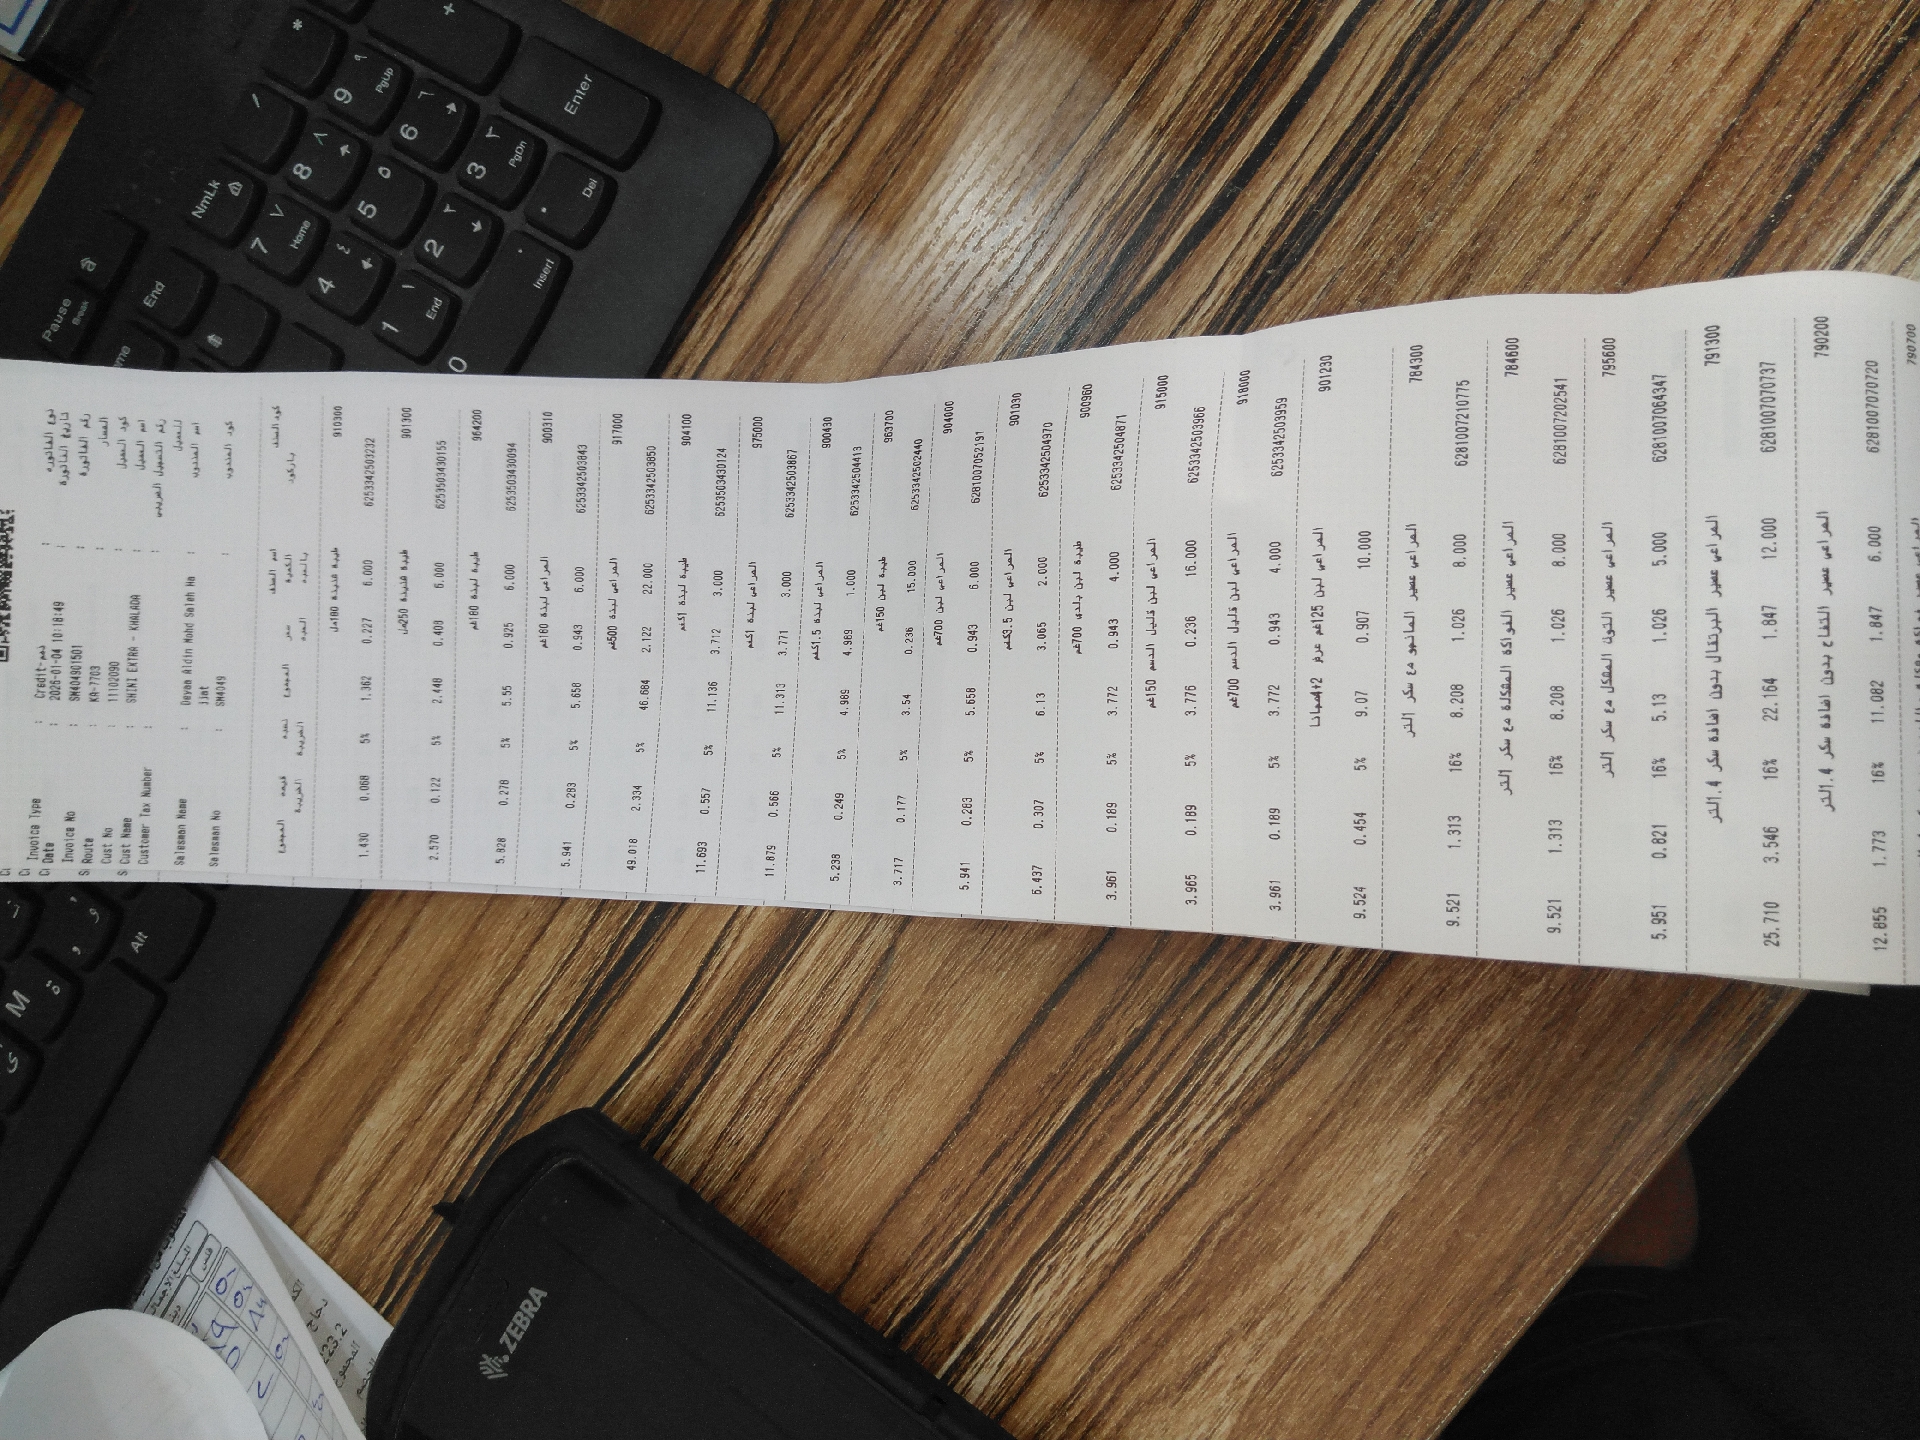 Invoice Type : Credit-ذمم : نوع الفاتوره
Date : 2026-01-04 10:18:49 : تاريخ الفاتورة
Invoice No : SM404901501 : رقم الفاتورة
Route : KA-7703 : المسار
Cust No : 11102090 : كود العميل
Cust Name : SHINI EXTRA - KHALADA : اسم العميل
Customer Tax Number : رقم التسجيل الضريبي للعميل
Salesman Name : Devan Aldin Mohd Saleh Ha : اسم المندوب
ijat
Salesman No : SM4049 : كود المندوب
المجموع قيمة الضريبة نسبة الضريبة المجموع سعر الحبة اسم الصنف الكمية بالحبة كود الصنف باركود
طيبة قشدة 180مل 910300
1.430 0.068 5% 1.362 0.227 6.000 6253342503232
طيبة قشدة 250مل 901300
2.570 0.122 5% 2.448 0.408 6.000 6253503430155
طيبة لبنة 180غم 964200
5.828 0.278 5% 5.55 0.925 6.000 6253503430094
المراعي لبنة 180غم 900310
5.941 0.283 5% 5.658 0.943 6.000 6253342503843
المراعي لبنة 500غم 917000
49.018 2.334 5% 46.684 2.122 22.000 6253342503850
طيبة لبنة 1كغم 904100
11.693 0.557 5% 11.136 3.712 3.000 6253503430124
المراعي لبنة 1كغم 975000
11.879 0.566 5% 11.313 3.771 3.000 6253342503867
المراعي لبنة 1.5كغم 900430
5.238 0.249 5% 4.989 4.989 1.000 6253342504413
طيبة لبن 150غم 963700
3.717 0.177 5% 3.54 0.236 15.000 6253342502440
المراعي لبن 700غم 904000
5.941 0.283 5% 5.658 0.943 6.000 6281007052191
المراعي لبن 3.5كغم 901030
6.437 0.307 5% 6.13 3.065 2.000 6253342504970
طيبة لبن بلدي 700غم 900960
3.961 0.189 5% 3.772 0.943 4.000 6253342504871
المراعي لبن قليل الدسم 150غم 915000
3.965 0.189 5% 3.776 0.236 16.000 6253342503966
المراعي لبن قليل الدسم 700غم 918000
3.961 0.189 5% 3.772 0.943 4.000 6253342503959
المراعي لبن 125غم عرض 4+2مجانا 901230
9.524 0.454 5% 9.07 0.907 10.000
المراعي عصير المانجو مع سكر 1لتر 784300
9.521 1.313 16% 8.208 1.026 8.000 6281007210775
المراعي عصير الفواكة المشكلة مع سكر 1لتر 784600
9.521 1.313 16% 8.208 1.026 8.000 6281007202541
المراعي عصير التوت المشكل مع سكر 1لتر 795600
5.951 0.821 16% 5.13 1.026 5.000 6281007064347
المراعي عصير البرتقال بدون اضافة سكر 1.4لتر 791300
25.710 3.546 16% 22.164 1.847 12.000 6281007070737
المراعي عصير التفاح بدون اضافة سكر 1.4لتر 790200
12.855 1.773 16% 11.082 1.847 6.000 6281007070720
790700
Pause
Break
Home
End
NmLk
7
Home
8
9
PgUp
4
5
6
1
End
2
3
PgDn
0
Insert
Del
Enter
+
*
/
M
Alt
ZEBRA
223.2
المجموع